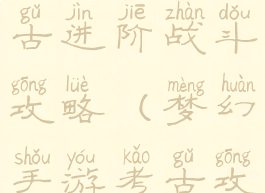 gǔ jìn jiē zhàn dǒu
古进阶战斗
gōng lüè mèng huàn
攻略(梦幻
shǒu yóu kǎo gǔ gōng
手游考古攻